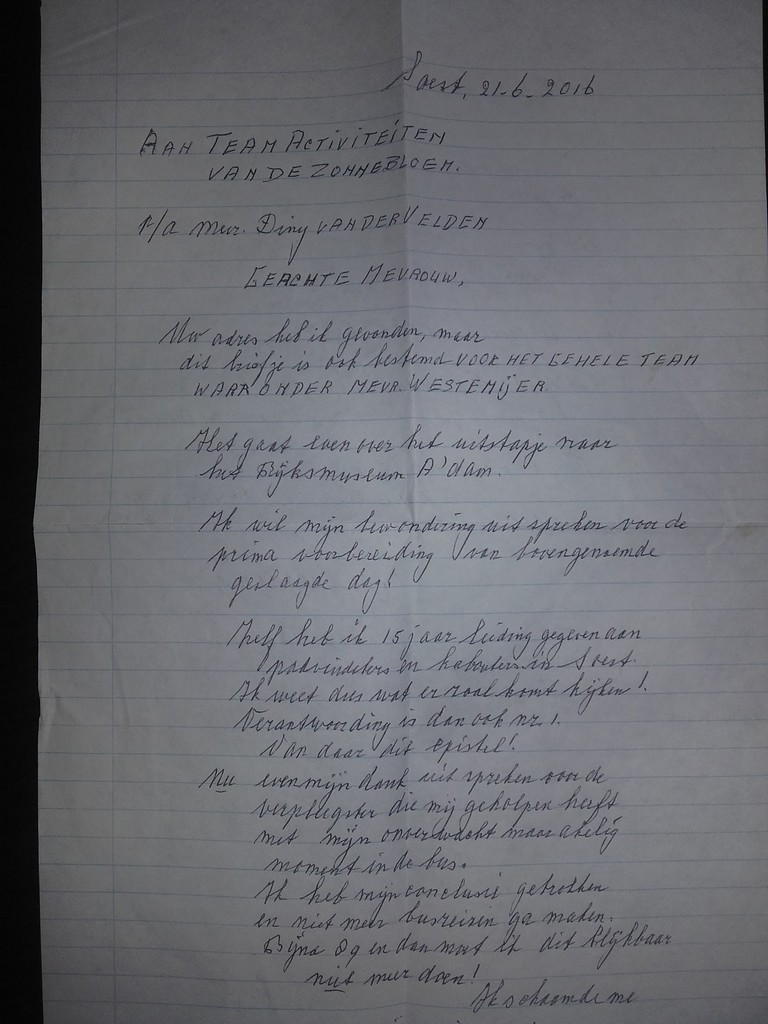 Soest, 21-6-2016
AAN TEAM ACTIVITEITEN
VAN DE ZONNEBLOEM.
P/a Mevr. Diny VAN DER VELDEN
GEACHTE MEVROUW,
Uw adres heb ik gevonden, maar
dit briefje is ook bestemd VOOR HET GEHELE TEAM
WAARONDER MEVR. WESTENIJER
Het gaat even over het uitstapje naar
het Rijksmuseum A'dam.
Ik wil mijn bewondering uitspreken voor de
prima voorbereiding van bovengenoemde
geslaagde dag!
Zelf heb ik 15 jaar leiding gegeven aan
padvindsters en kabouters in Soest.
Ik weet dus wat er zoal komt kijken!
Verantwoording is dan ook nr. 1.
Van daar dit epistel!
Nu even mijn dank uit spreken voor de
verpleegster die mij geholpen heeft
met mijn onverwacht maar akelig
moment in de bus.
Ik heb mijn conclusie getrokken
en niet meer busreizen ga maken.
Bijna 89 en dan moet ik dit blijkbaar
niet meer doen!
Ik schaamde me